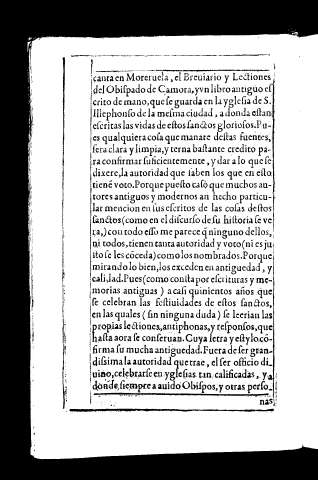 canta en Moreruela, el Breuiario y Lectiones
del Obispado de Çamora, y vn libro antiguo es
crito de mano, que se guarda en la yglesia de S.
Illephonso de la mesma ciudad, a donda estan
escritas las vidas de estos sanctos gloriosos. Pu-
es qualquiera cosa que manare destas fuentes,
sera clara y limpia, y terna bastante credito pa-
ra confirmar suficientemente, y dar a lo que se
dixere, la autoridad que saben los que en esto
tienē voto. Porque puesto casō que muchos au-
tores antiguos y modernos an hecho particu-
lar mencion en sus escritos de las cosas destos
sanctos (como en el discurso de su historia se ve
ra,) con todo esso me parece q̄ ninguno dellos,
ni todos, tienen tanta autoridad y voto (ni es ju
sto se les cōceda) como los nombrados. Porque
mirando lo bien, los exceden en antiguedad, y
calidad. Pues (como consta por escrituras y me-
morias antiguas) a casi quinientos años que
se celebran las festiuidades de estos sanctos,
en las quales (sin ninguna duda) se leerian las
propias lectiones, antiphonas, y responsos, que
hasta aora se conseruan. Cuya letra y estylo cō-
firma su mucha antiguedad. Fuera de ser gran-
dissima la autoridad que trae, el ser officio di-
uino, celebrarse en yglesias tan calificadas, y a
donde siempre a auido Obispos, y otras perso-
nas